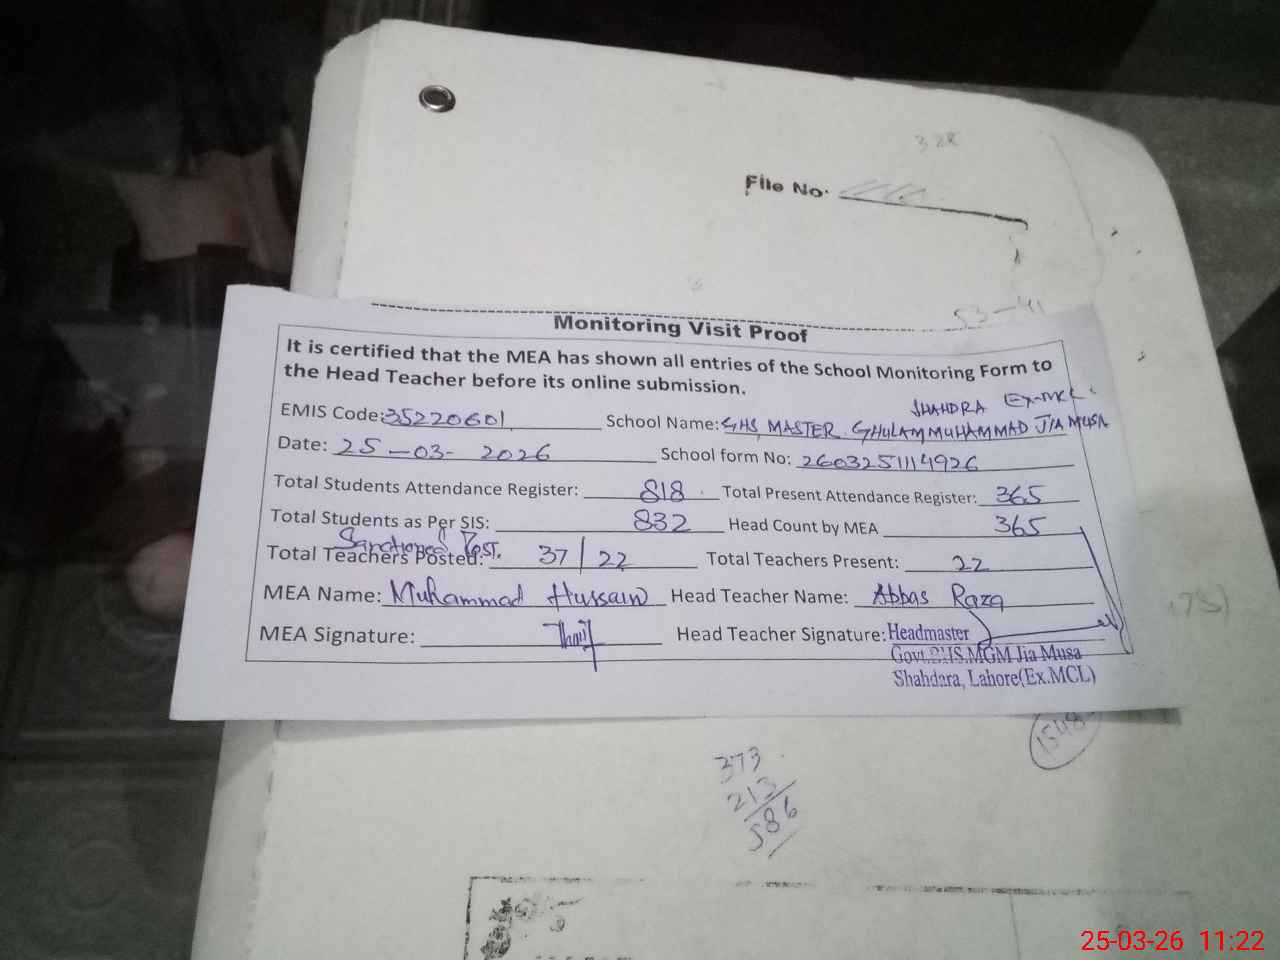 328
File No.
53-41
Monitoring Visit Proof
It is certified that the MEA has shown all entries of the School Monitoring Form to
the Head Teacher before its online submission.
SHAHDRA Ex-MCL
EMIS Code: 35220601 School Name: GHS MASTER GHULAM MUHAMMAD JIA MUSA
Date: 25-03-2026 School form No: 2603251114926
Total Students Attendance Register: 818 Total Present Attendance Register: 365
Total Students as Per SIS: 832 Head Count by MEA 365
Sanctioned Post.
Total Teachers Posted: 37/22 Total Teachers Present: 22
MEA Name: Muhammad Hussain Head Teacher Name: Abbas Raza
MEA Signature: Head Teacher Signature: Headmaster
Govt. BHS.MGM Jia Musa
Shahdara, Lahore(Ex.MCL)
1548
373
213
586
25-03-26 11:22